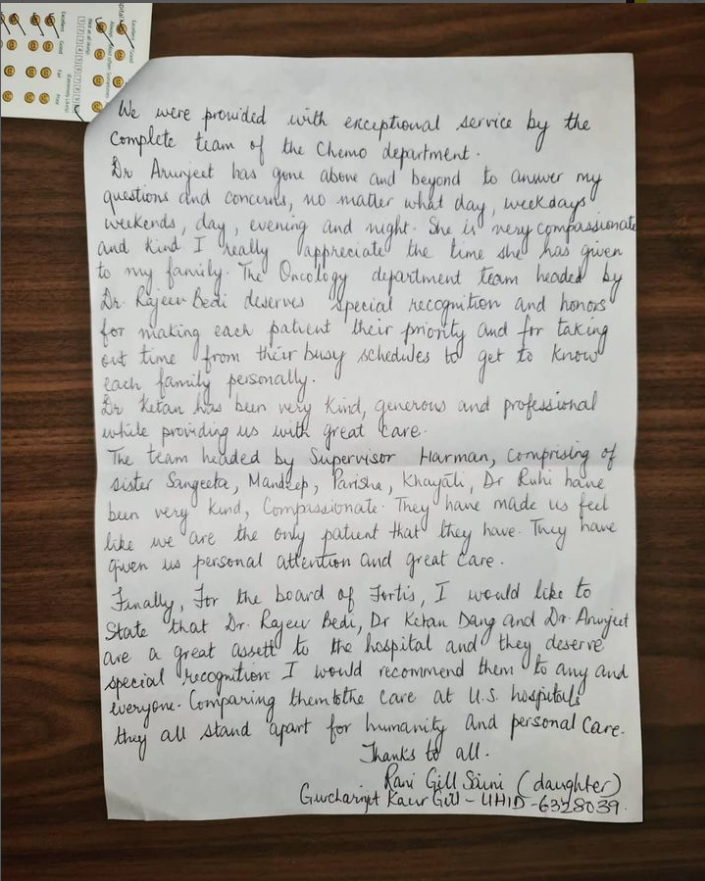 Excellent
Good
Fair
Poor
We were provided with exceptional service by the
complete team of the Chemo department.
Dr Arunjeet has gone above and beyond to answer my
questions and concerns, no matter what day, weekdays
weekends, day, evening and night. She is very compassionate
and kind I really appreciate the time she has given
to my family. The Oncology department team headed by
Dr. Rajeev Bedi deserves special recognition and honors
for making each patient their priority and for taking
out time from their busy schedules to get to know
each family personally.
Dr Ketan has been very kind, generous and professional
while providing us with great care.
The team headed by Supervisor Harman, comprising of
sister Sangeeta, Mandeep, Parisha, Khayati, Dr Ruhi have
been very kind, Compassionate. They have made us feel
like we are the only patient that they have. They have
given us personal attention and great care.
Finally, For the board of Fortis, I would like to
State that Dr. Rajeev Bedi, Dr Ketan Dang and Dr. Arunjeet
are a great assett to the hospital and they deserve
special recognition I would recommend them to any and
everyone. Comparing them to the care at U.S. hospitals
they all stand apart for humanity and personal care.
Thanks to all.
Rani Gill Saini (daughter)
Gurcharnjit Kaur Gill - UHID - 6328039.